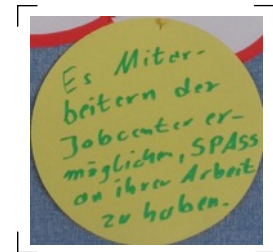 Es Mitar-
beitern der
Jobcenter er-
möglichen, SPASS
an ihrer Arbeit
zu haben.